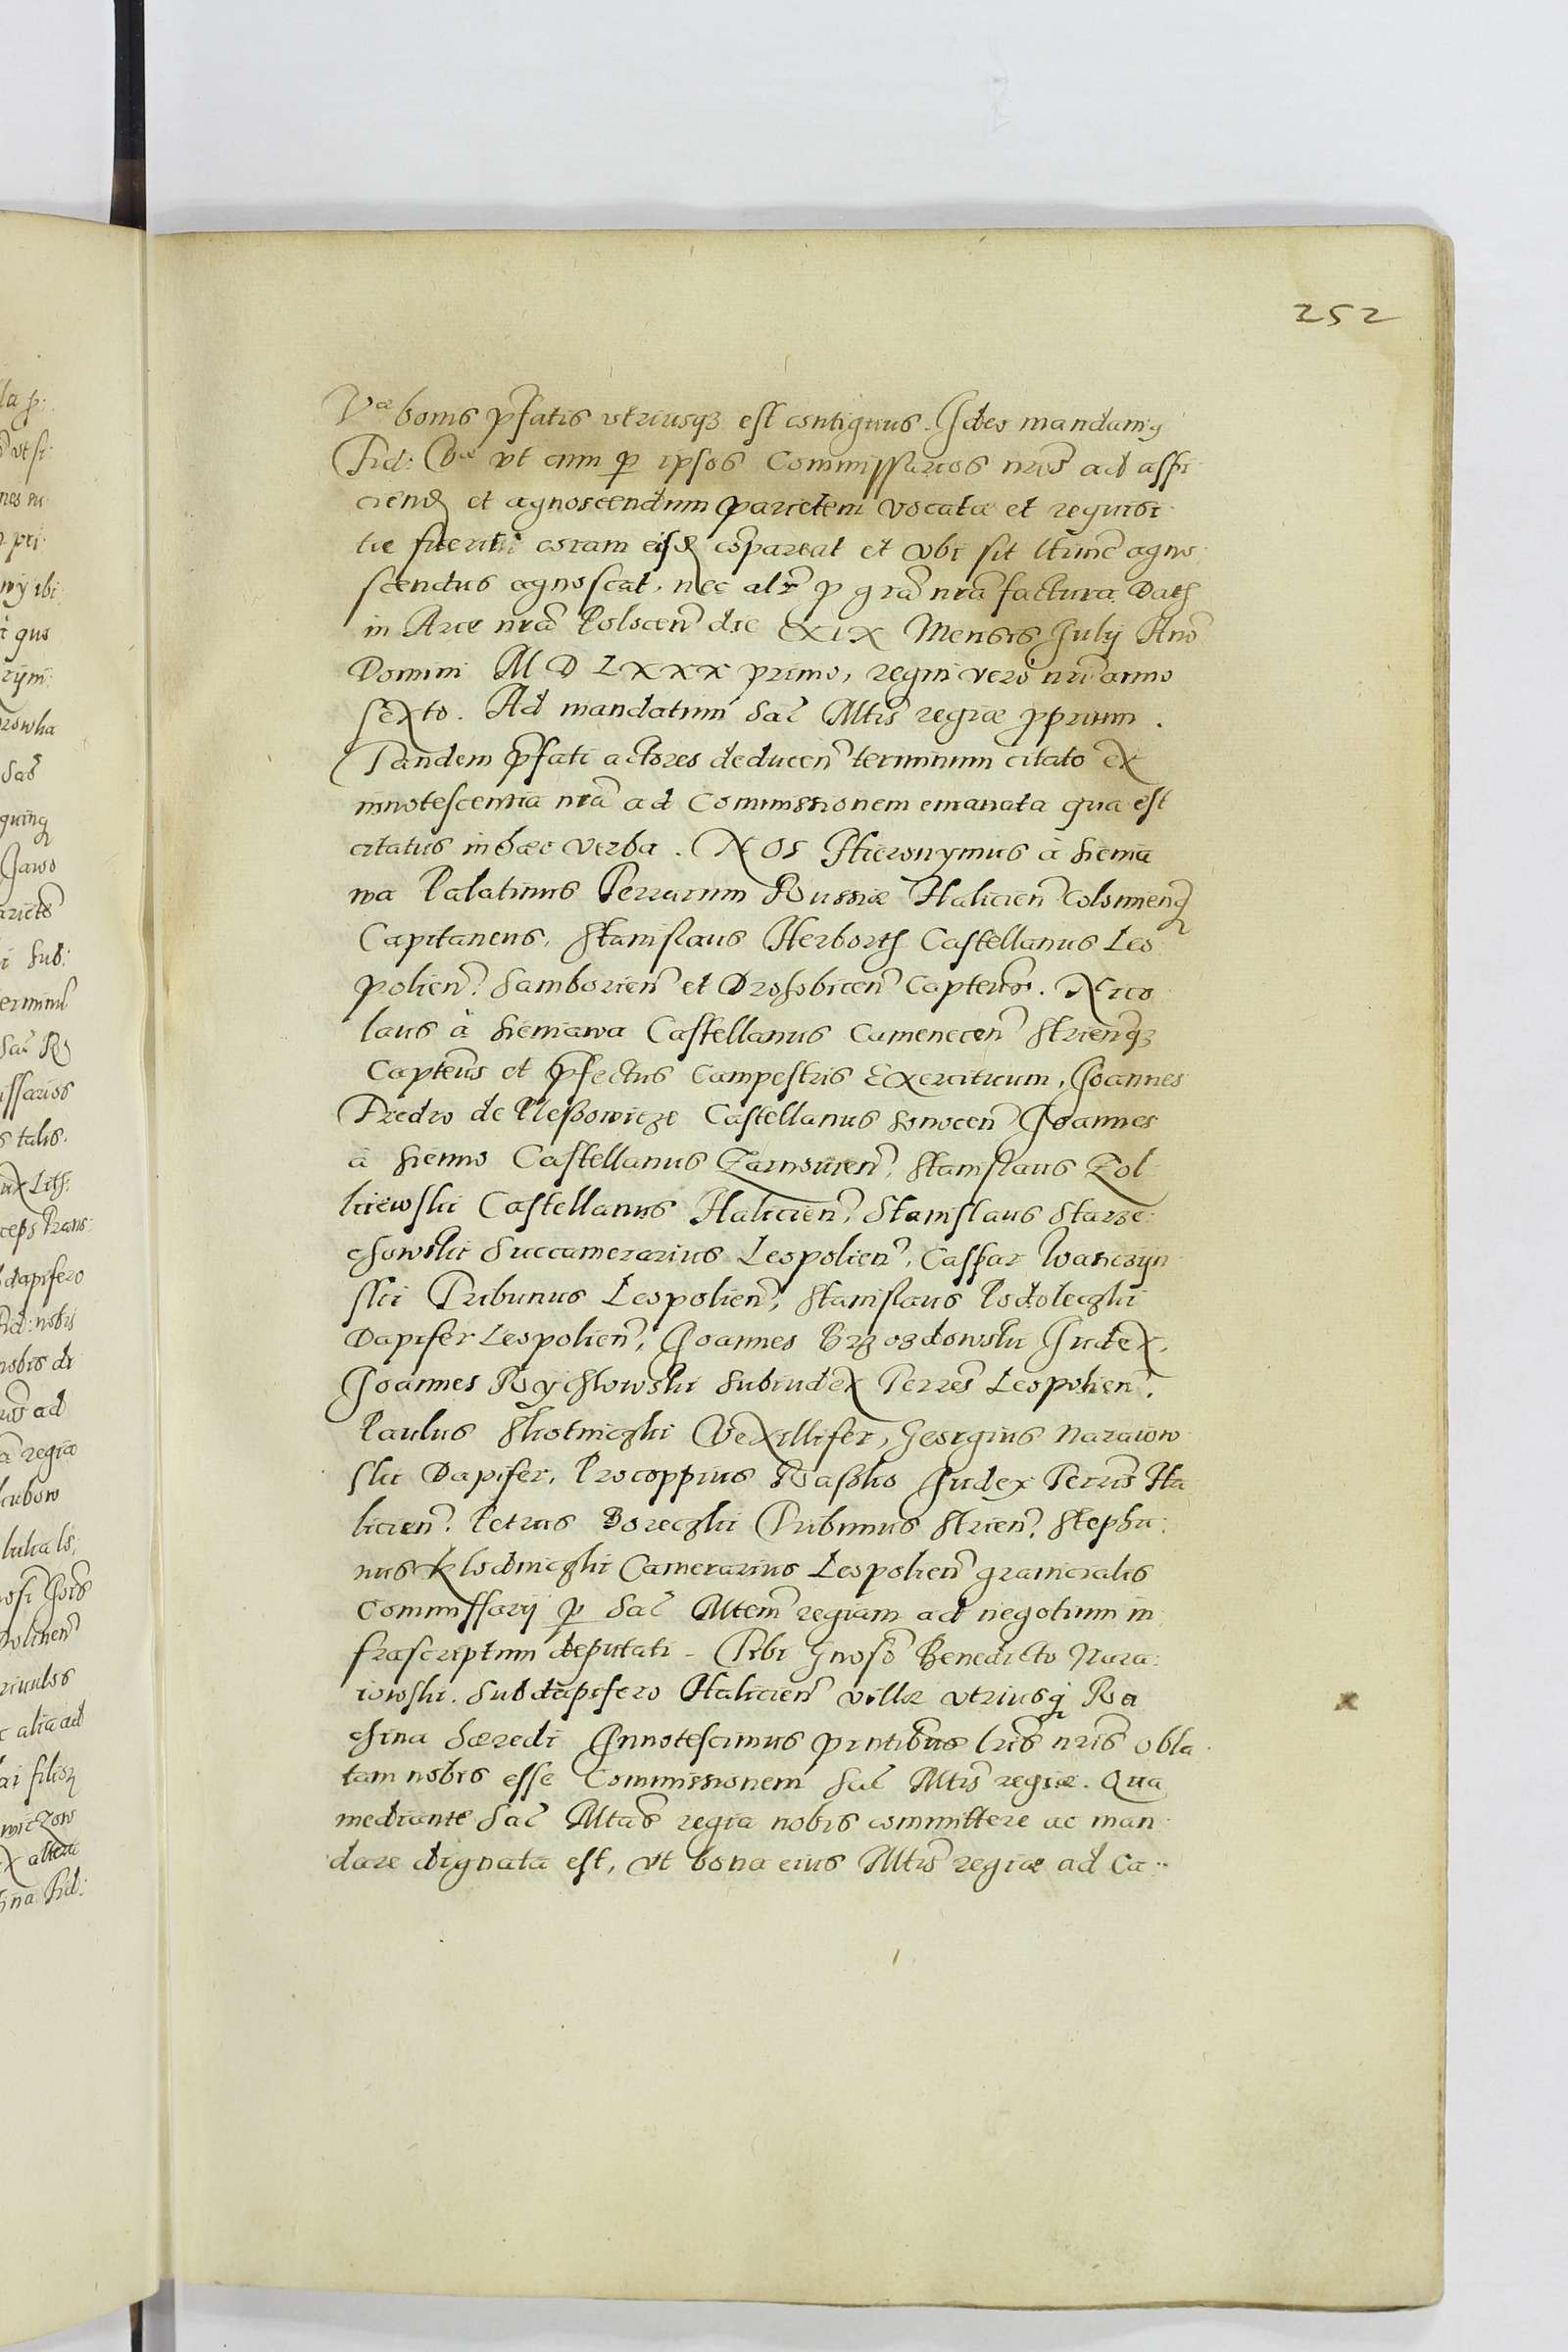 252
Vræ bonis pfatis utriusqz est contiguus. Ideo mandamq
Fid: Væ ut cum p ipsos Commissarios nros ad aspi
ciend et agnoscendum parietem vocatæ et requisi
tæ fuerint coram eisd compareat et ubi sit hinc agno
scendus agnoscat, nec alr p gra nra factura. Dath
in Arce nra Polocen die XXIX Mensis Julij Ano
Domini M D LXXX primo, regni vero nri anno
sexto. Ad mandatum Sac Mtis regiæ pprium.
Tandem pfati actores deducen terminum citato ex
innotescentia nra ad Commissionem emanata qua est
citatus in hæc verba. NOS Hieronymus à Sienia
wa Palatinus Terrarum Russiæ Halicien Colomienq
Capitaneus, Stanislaus Herborth Castellanus Leo
polien? Samborien et Drohobicen Capteus. Nico
laus à Sieniawa Castellanus Camenecen Strienqz
Capteus et pfectus Campestris Exercituum, Joannes
Fredro de Pleßowicze Castellanus Sonocen Joannes
à Sienno Castellanus Zarnouien, Stanislaus Zol
kiewski Castellanus Halicien, Stanislaus Starze
chowski Succamerarius Leopolien, Caspar Wanczyn
ski Tribunus Leopolien, Stanislaus Podoleczki
Dapifer Leopolien, Joannes Brzozdowski Judex,
Joannes Rychlowski Subiudex Terres Leopolien,
Paulus Skotniczki Vexillifer, Georgius Naraiow
ski Dapifer, Procoppius Raßko Judex Terris Ha
licien? Petrus Boreczki Tribunus Strien, Stepha:
nus Klodniczki Camerarius Leopolien granicialis
Commissarij p Sac Mtem regiam ad negotium in
frascriptum deputati – Tibi Gnoso Benedicto Nara:
iowski Subdapifero Halicien villæ utriusq Ro
hina hæredi Innotescimus pntibus lris nris obla
tam nobis esse Commissionem Sac Mtis regiæ. Qua
mediante Sac Mtas regia nobis committere ac man
dare dignata est, ut bona eius Mtis regiæ ad Ca..